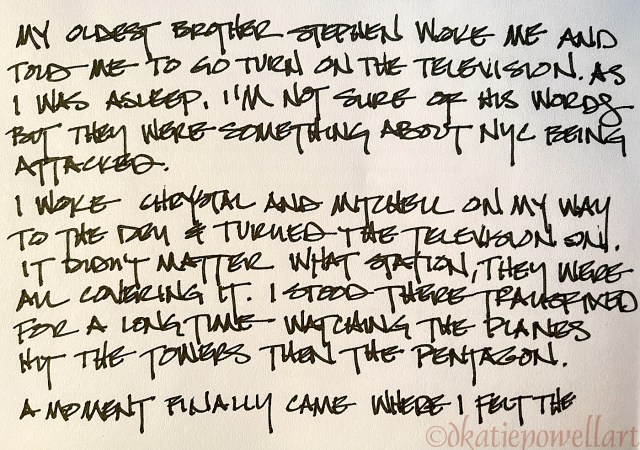 MY OLDEST BROTHER STEPHEN WOKE ME AND
TOLD ME TO GO TURN ON THE TELEVISION. AS
I WAS ASLEEP, I'M NOT SURE OF HIS WORDS
BUT THEY WERE SOMETHING ABOUT NYC BEING
ATTACKED.
I WOKE CHRYSTAL AND MITCHELL ON MY WAY
TO THE DEN & TURNED THE TELEVISION ON.
IT DIDN'T MATTER WHAT STATION, THEY WERE
ALL COVERING IT. I STOOD THERE TRANSFIXED
FOR A LONG TIME WATCHING THE PLANES
HIT THE TOWERS THEN THE PENTAGON.
A MOMENT FINALLY CAME WHERE I FELT THE
©dkatiepowellart